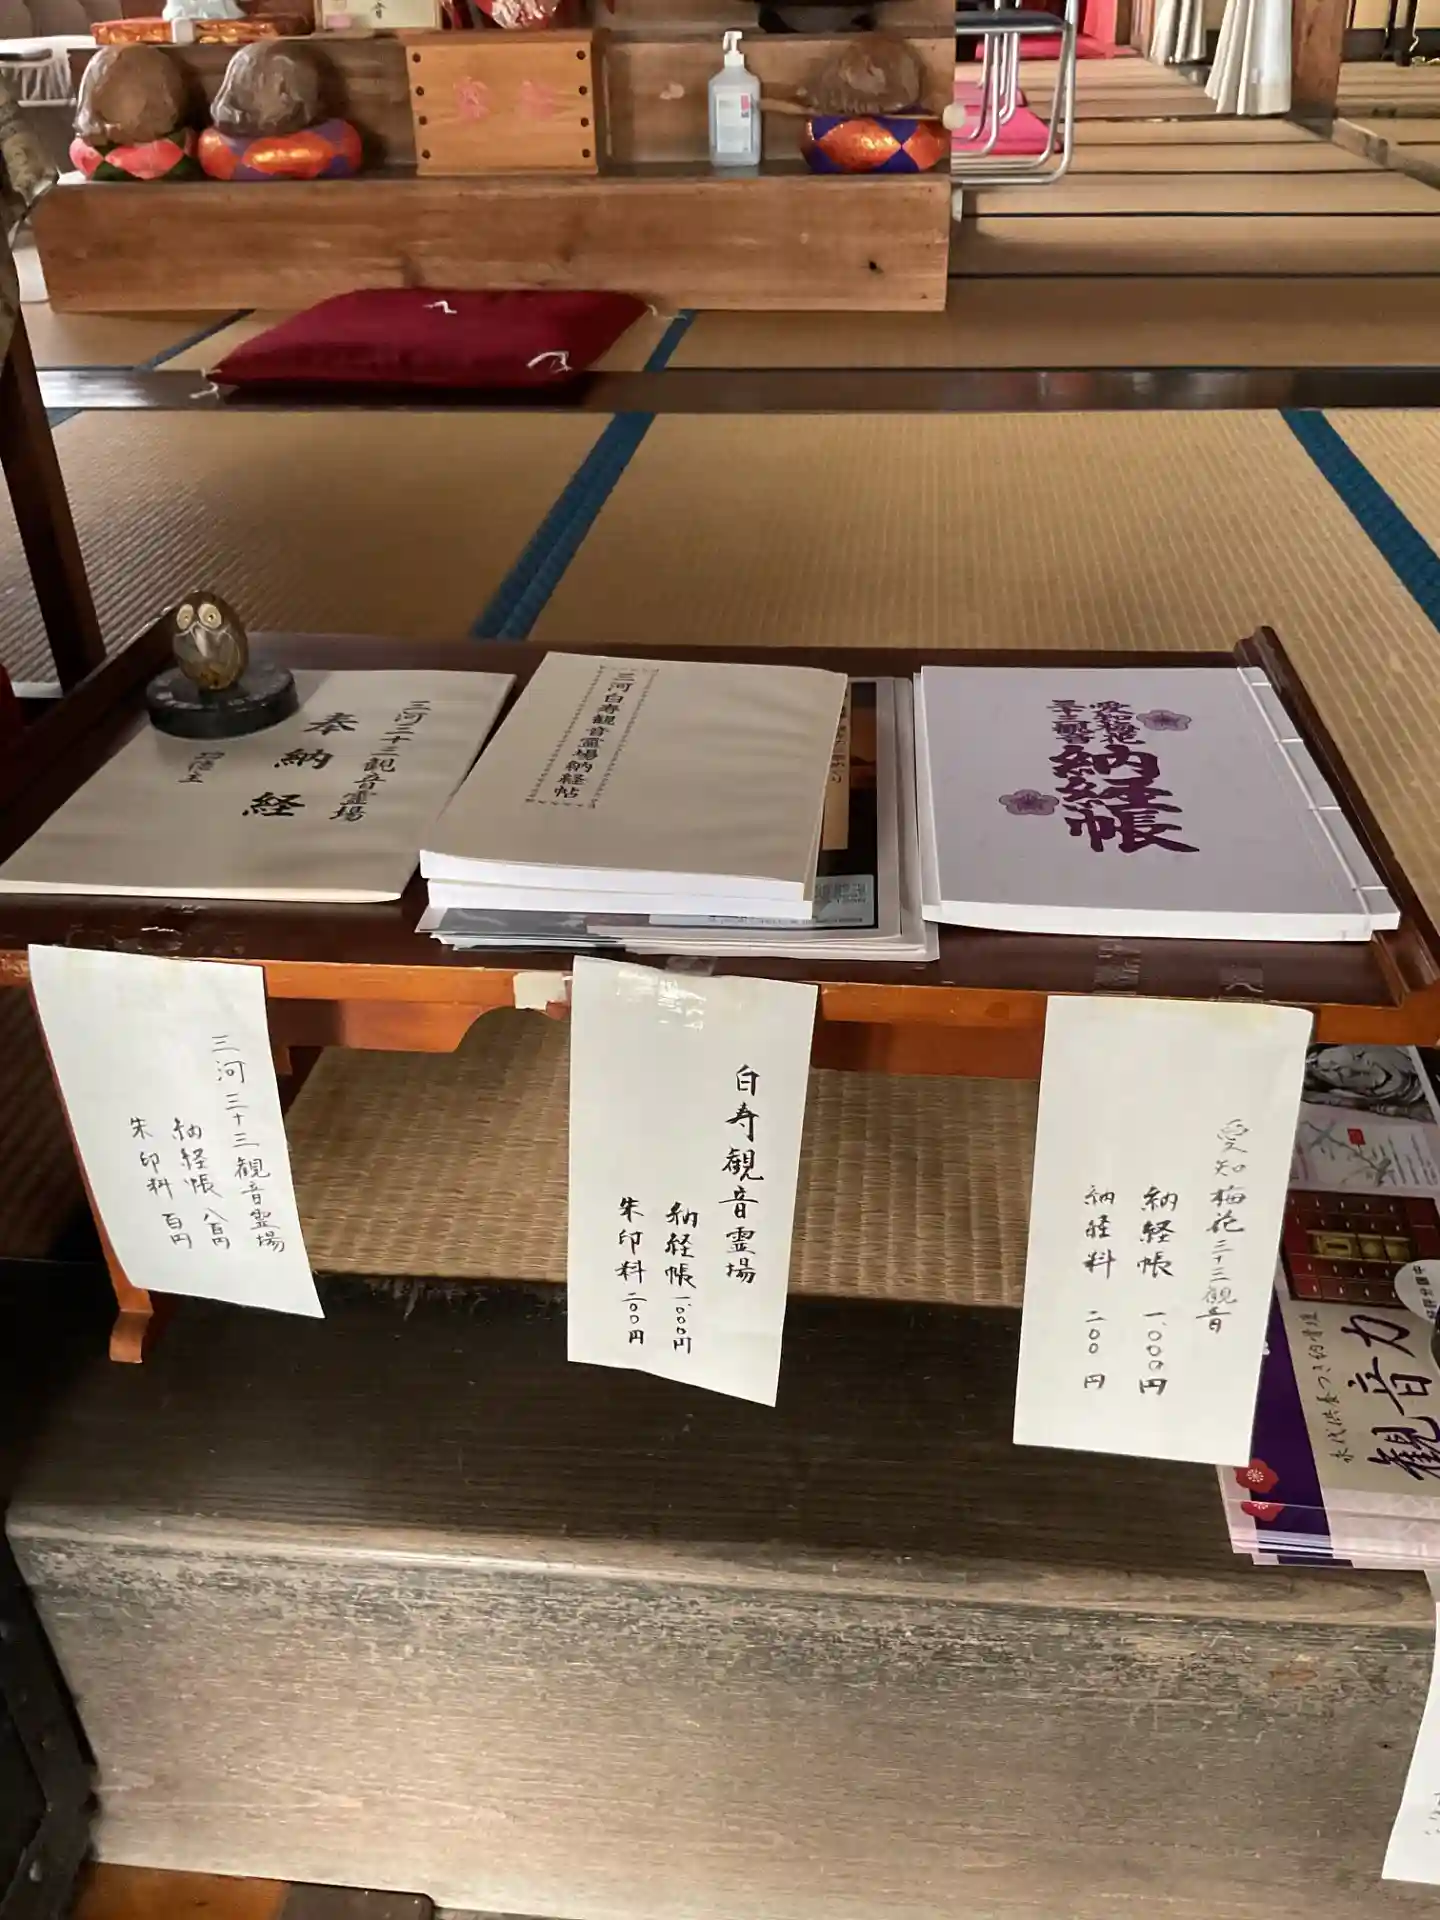 三河三十三観音霊場
奉納経
三河白寿観音霊場納経帖
愛知梅花
三十三観音
納経帳
三河三十三観音霊場
納経帳 八百円
朱印料 百円
白寿観音霊場
納経帳 一、〇〇〇円
朱印料 二〇〇円
愛知梅花三十三観音
納経帳 一、〇〇〇円
納経料 二〇〇円
永代供養つき納骨壇
観音力